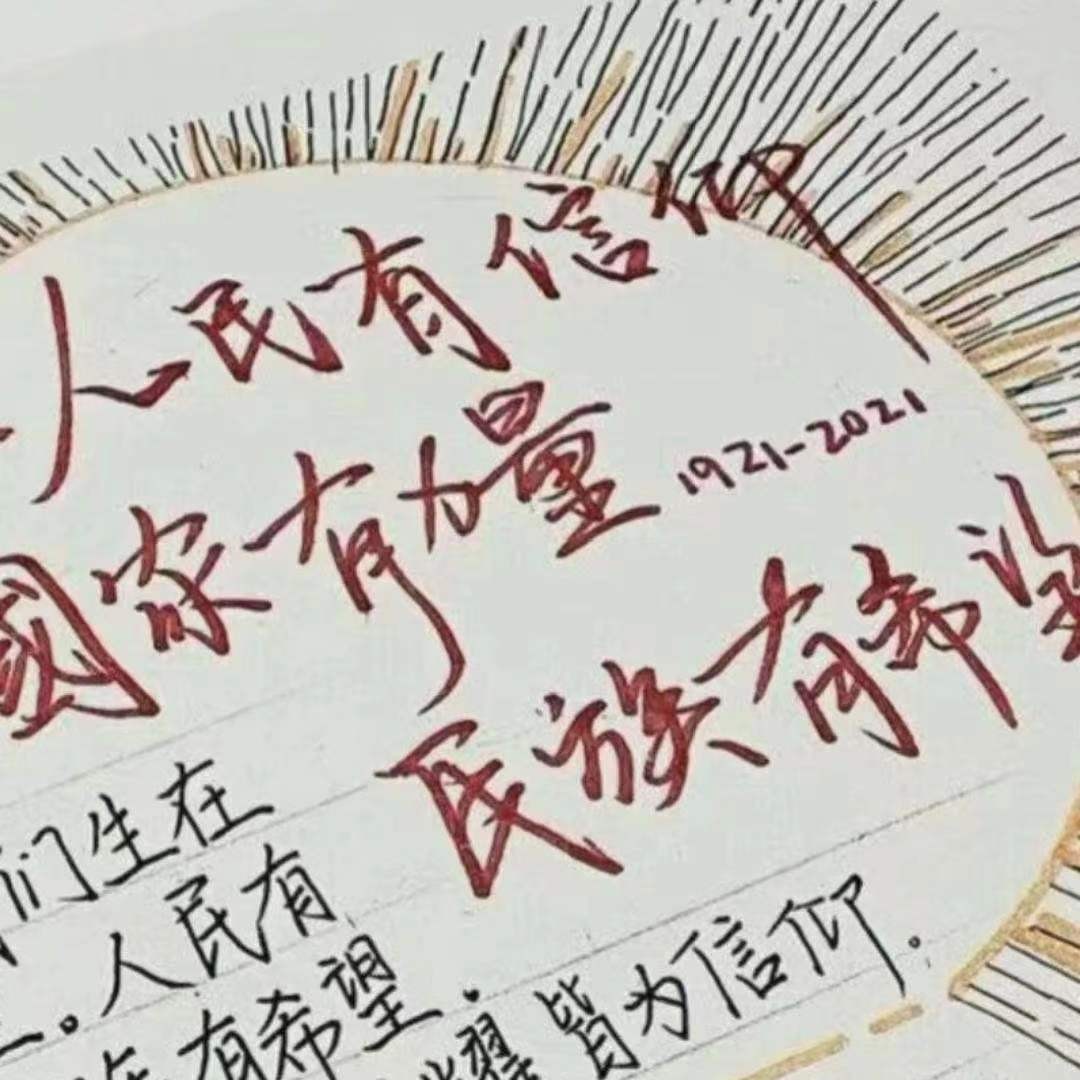 人民有信仰
國家有力量
1921-2021
民族有希望
们生在
。人民有
有希望.
耀 皆为信仰.